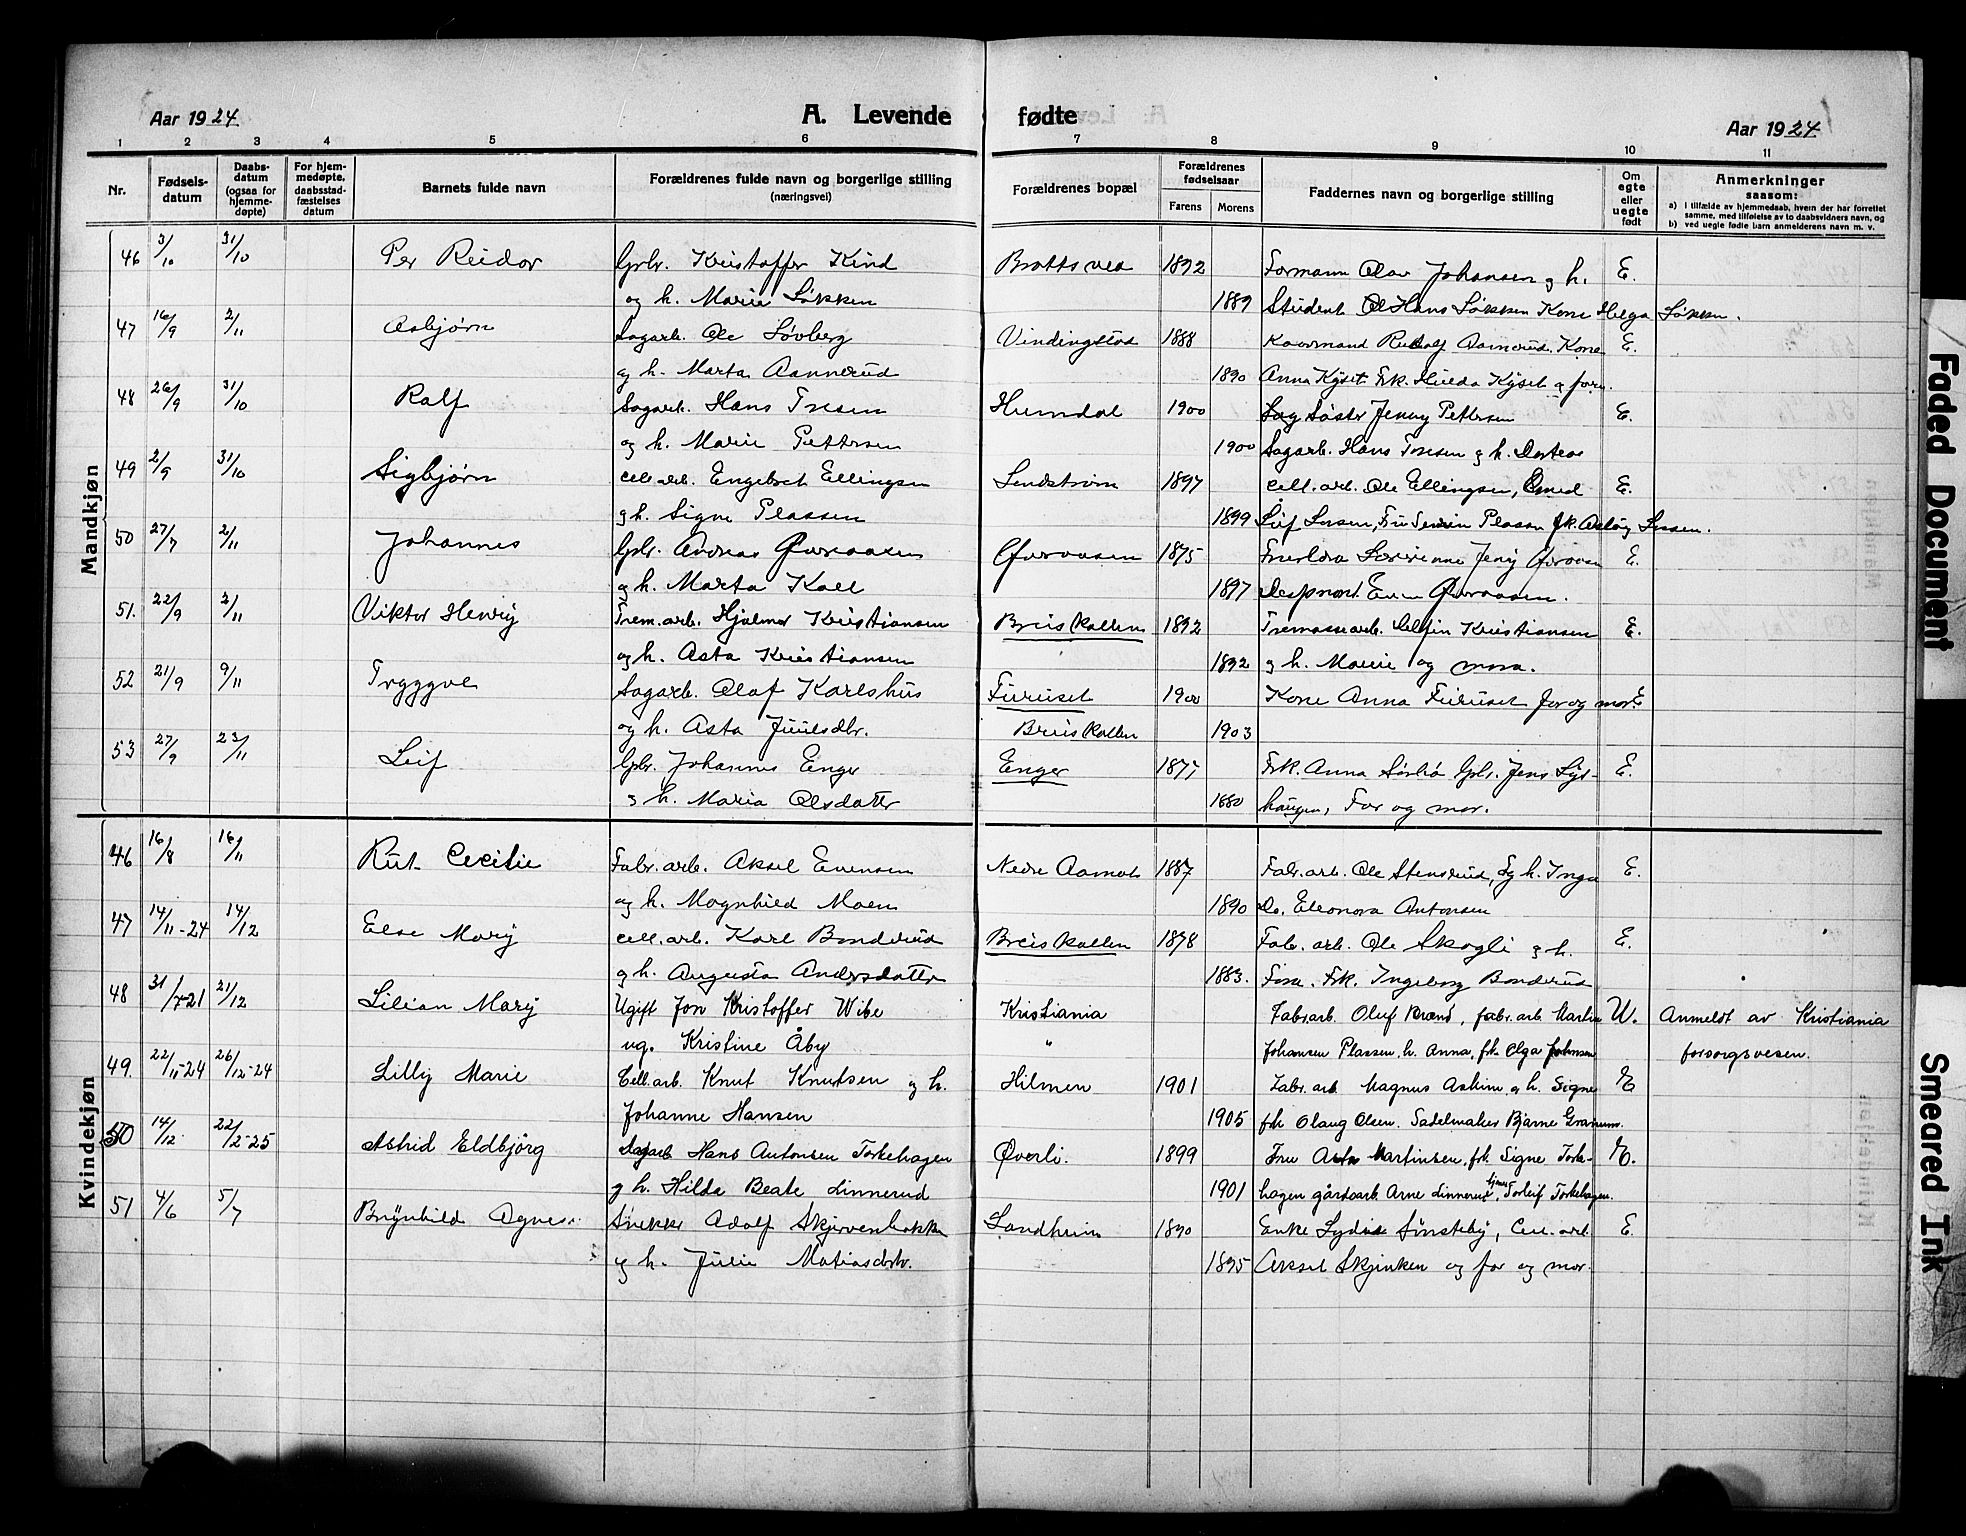 Aar 1924
A. Levende fødte
Aar 1924
1 2 3 4 5 6 7 8 9 10 11
Nr.
Fødsels-
datum
Daabs-
datum
(ogsaa for
hjemme-
døpte)
For hjem-
medøpte,
daabsstad-
fæstelses
datum
Barnets fulde navn
Forældrenes fulde navn og borgerlige stilling
(næringsvei)
Forældrenes bopæl
Forældrenes
fødselsaar
Farens Morens
Faddernes navn og borgerlige stilling
Om
egte
eller
uegte
født
Anmerkninger
saasom:
a) i tilfælde av hjemmedaab, hvem der har forrettet
samme, med tilføielse av to daabsvidners navn, og
b) ved uegte fødte barn anmelderens navn m. v.
Mandkjøn
46 3/10 31/10 Per Reidar Gbr. Kristoffer Kind 1892 Formann Olav Johansen og h. E.
og h. Marie Løkken 1889 Student Hans Løkken Kone Helga Løkken.
47 16/9 2/11 Asbjørn Sagarb. Ole Løvberg Vindingstad 1888 Rudolf Aamerud. Kone E.
og h. Marta Aannerud 1890 Anna Kyset Frk. Hulda Kyset og foræ.
48 26/9 31/10 Ralf Sagarb. Hans Tresen Humdal 1900 Jenny Pettersen E.
og h. Marie Pettersen 1900 Sagarb. Hans Tresen og h. Dortea
49 2/9 31/10 Sigbjørn Cell.arb. Engebret Ellingsen Lundstrøm 1897 Cell.arb. Ole Ellingsen, Smed E.
og h. Signe Plassen 1899 Leif Larsen, Fru Plassen frk. Aslaug Larsen.
50 27/7 2/11 Johannes Gbr. Andreas 1875 Jenny E.
og h. Marta 1897 Even
51. 22/9 2/11 Viktor Henry Trem.arb. Hjalmar Kristiansen Breiskallen 1892 Tremassearb. Kristiansen E.
og h. Asta Kristiansen 1892 og h. Marie og mora.
52 21/9 9/11 Tryggve Sagarb. Olaf Karlshus Furuset 1900 Kone Anna Furuset far og mor. E
og h. Asta Juulsdtr. Breiskallen 1903
53 27/9 23/11 Leif Gbr. Johannes Enger Enger 1877 Frk. Anna Gbr. Jens E.
og h. Maria Olsdatter 1880 haugen, Far og mor.
Kvindekjøn
46 16/8 16/11 Rut Cecilie Fabr.arb. Aksel Evensen Nedre Aamot 1887 Fabr.arb. Ole Stensrud, og h. Inga E.
og h. Magnhild Moen 1890 Do. Eleonora Antonsen
47 14/11-24 14/12 Else Mary Cell.arb. Karl Bonderud Breiskallen 1878 Fabr.arb. Ole Skogli og h. E.
og h. Augusta Andersdatter 1883. Frk. Ingeborg Bonderud
48 31/7-21 21/12 Lilian Mary Ugift Jon Kristoffer Wibe Kristiania Fabr.arb. Oluf Brænd, fabr.arb. Martin U. Anmeldt av Kristiania
ug. Kristine Åby " Johansen Plassen, h. Anna, frk. Olga Johansen forsorgsvesen.
49. 22/11-24 26/12-24 Lilly Marie Cell.arb. Knut Knutsen og h. Hilmen 1901 Fabr.arb. Magnus Askim og h. Signe E
Johanne Hansen 1905 frk Olaug Olsen. Sadelmaker Bjarne Granum.
50 14/12 22/2-25 Astrid Eldbjörg Sagarb Hans Antonsen Torkehagen Øverli. 1899 Fru Martinsen, frk. Signe Torke- E.
og h. Hilda Beate Linnerud 1901 hagen gårdsarb. Arne Linnerud, Torleif Torkehagen.
51 4/6 5/7 Brynhild Agnes Snekker Adolf Skjervenbakken Landheim 1890 Enke Lydia Sønsteby, Cell.arb. E
og h. Julie Matiasdatr. 1895 Aksel Skjinken og far og mor.
Faded Document
Smeared Ink